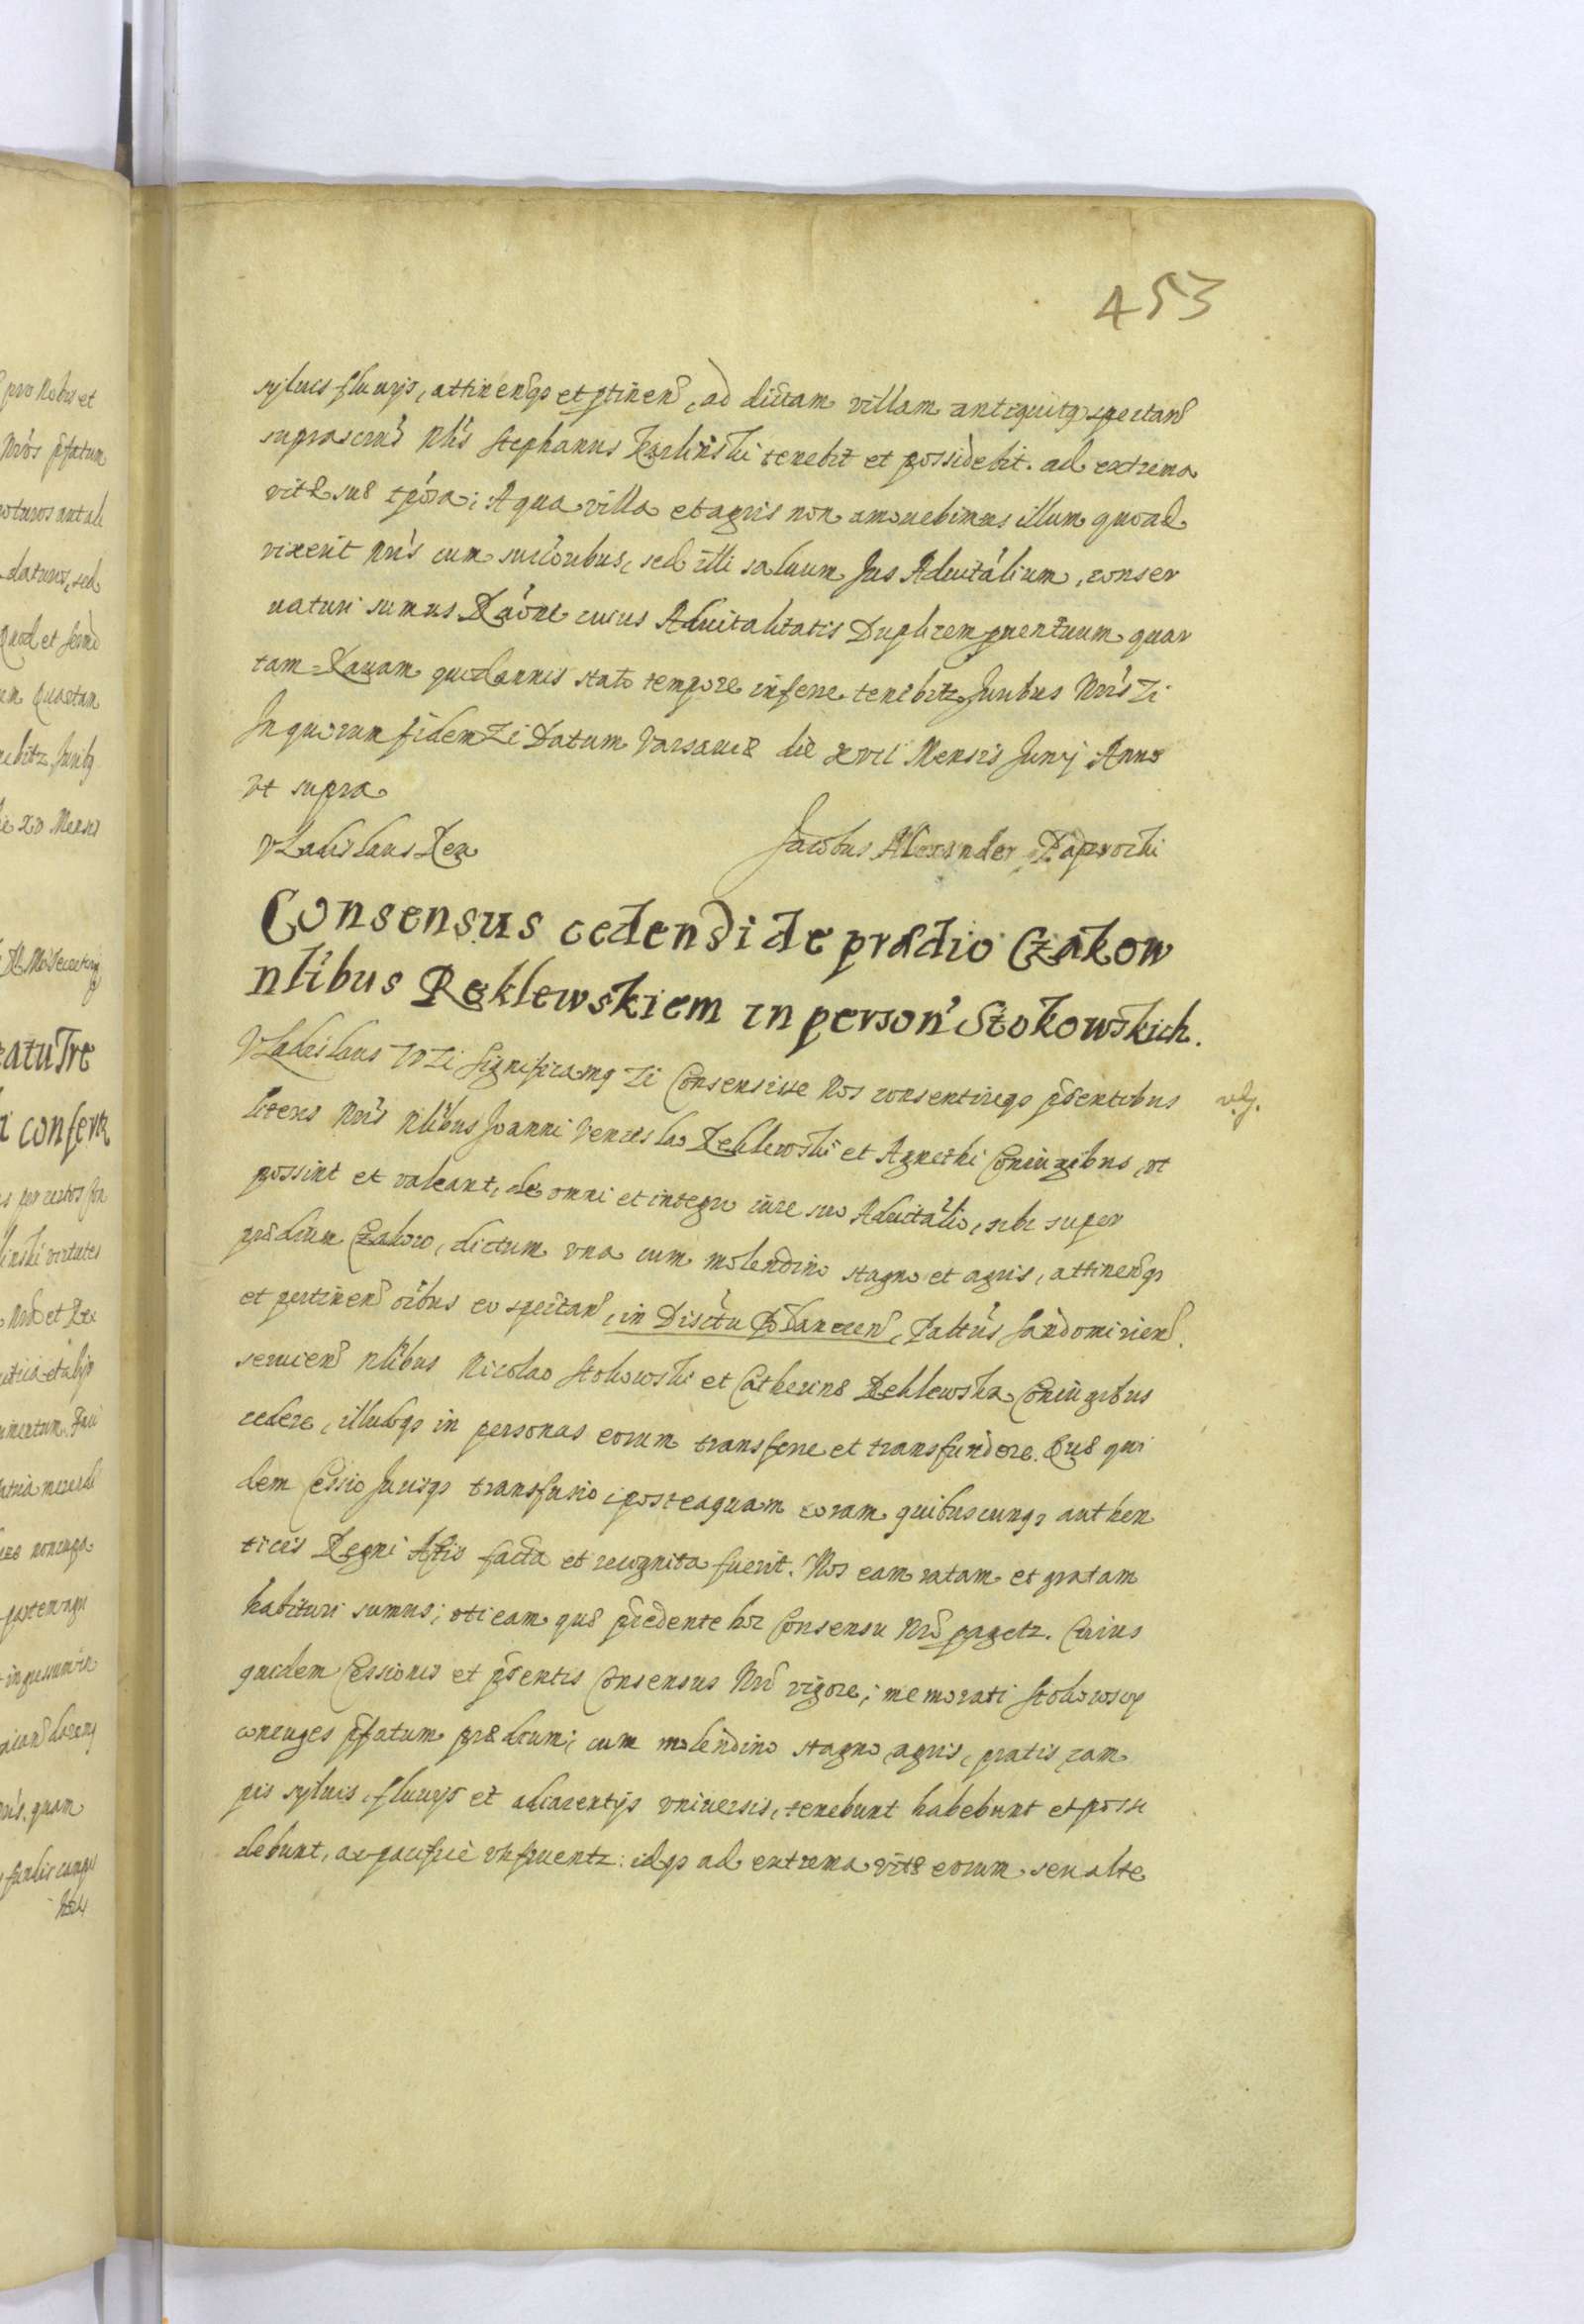 453
syluis fluuijs, attinen̄qȝ et ptinen̄, ad dictam villam antiquitȝ spectan̄
suprascrus Nlis Stephanus Karlinski tenebit et possidebit. ad extrema
vitæ suæ tpora; A qua villa et agris non amouebimus illum quoad
vixerit Nris cum succoribus, sed illi saluum Jus Aduitalium, conser
uaturi sumus Raone cuius Aduitalitatis Duplicem prouentuum quar
tam Rauam quodannis stato tempore inferre tenebitz Juribus Nris Zi
In quorum fidem Zi Datum Varsauiæ die xvii Mensis Junij Anno
vt supra
Vladislaus Rex Jacobus Alexander Paprocki
Consensus cedendi de prædio Czakow
nlibus Reklewskiem in person' Stokowskich.
Vladislaus IV Zi Significamq Zi Consensisse Nos consentireqȝ pñtentibus
literis Nris Nlibus Joanni Venceslao Reklewski et Agnethi Coniugibus, vt
possint et valeant, de omni et integro iure suo Aduitalio, sibi super
prædium Czakow, dictum vna cum molendino stagno et agris, attinen̄qȝ
et pertinen̄ oibus eo spectan̄, in Disctu , Pattus Sandomirien̄.
seruien̄ Nlibus Nicolao Stokowski et Catherinæ Reklewska Coniugibus
cedere, illudqȝ in personas eorum transferre et transfundere. Quæ qui
dem Cessio Jurisqȝ transfusio posteaquam coram quibuscunqȝ authen
ticis Regni Actis facta et recognita fuerit. Nos eam ratam et gratam
habituri sumus; vti eam quæ præcedente hoc Consensu Nro pagetz. Cuius
quidem Cessionis et pñtentis Consensus Nri vigore; memorati Stokowscy
coniuges pfatum prædium; cum molendino stagno agris, pratis cam
pis syluis, fluuijs et adiacentijs vniuersis, tenebunt habebunt et possi
debunt, ac pacifice vtifruentz: idqȝ ad extrema vitæ eorum seu alte